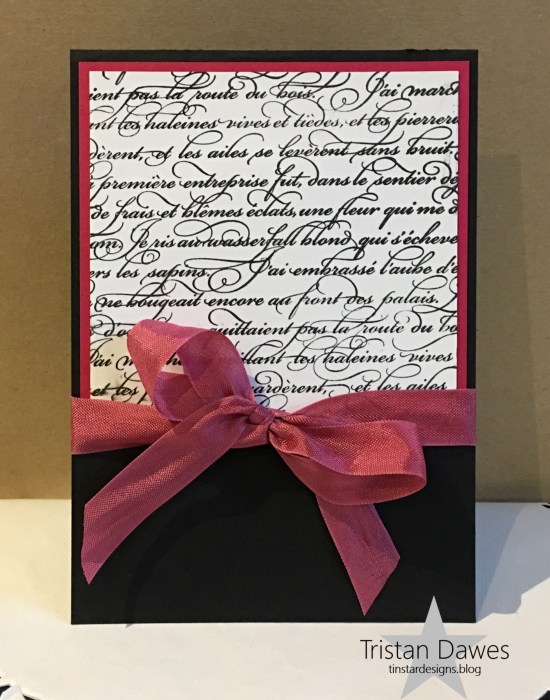 ient pas la route du bois. J'ai march
ant les haleines vives et tièdes, et les pierreri
dèrent, et les ailes se levèrent sans bruit
a première entreprise fut, dans le sentier dé
de frais et blêmes éclats, une fleur qui me d
om. Je ris au wasserfall blond qui s'écheve
ers les sapins. J'ai embrassé l'aube d'é
ne bougeait encore au front des palais. L
d'o uittaient pas la route du bo
J'ai march illant les haleines vives
et les p ardèrent, et les ailes
Tristan Dawes
tinstardesigns.blog